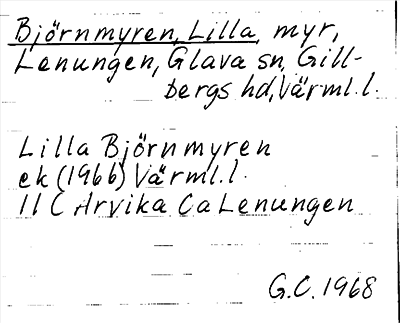 Björnmyren, Lilla, myr,
Lenungen, Glava sn, Gill-
bergs hd, Värml. l.
Lilla Björnmyren
ek (1966) Värml. l.
11 C Arvika Ca Lenungen
G.C. 1968